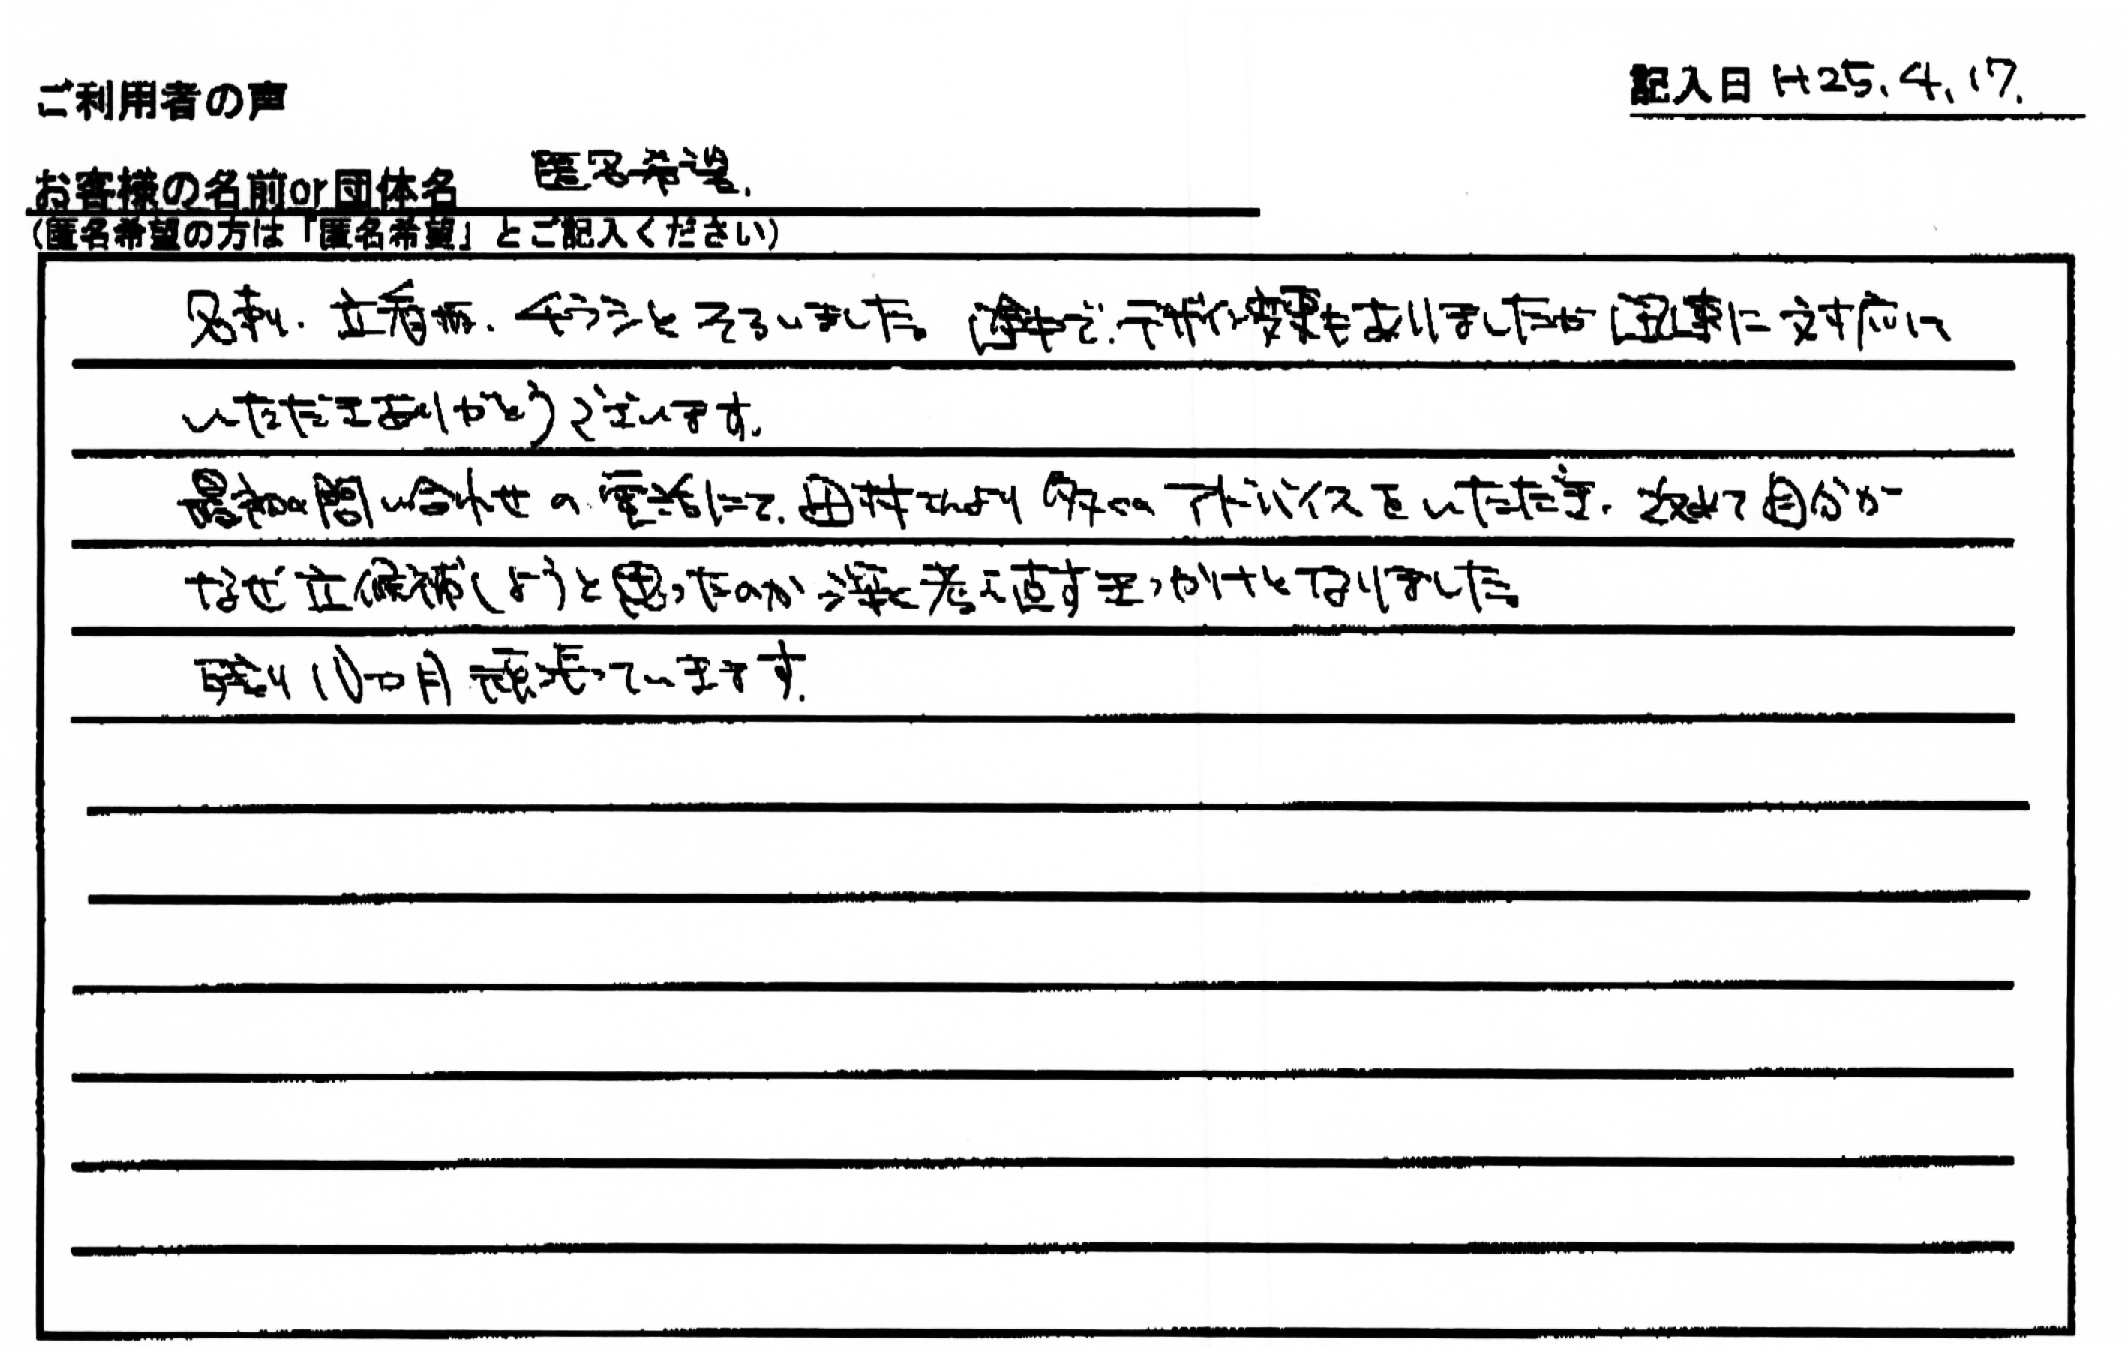 ご利用者の声
記入日 H25.4.17.
お客様の名前or団体名 匿名希望.
(匿名希望の方は「匿名希望」とご記入ください)
名刺、立看板、チラシとそろいました。途中で、デザイン変更もありましたが迅速に対応
いただきありがとうございます。
最初の問い合わせの電話にて、田村さんより多くのアドバイスをいただき、改めて自分が
なぜ立候補しようと思ったのか深く考え直すきっかけとなりました。
残り10ヶ月頑張っています。